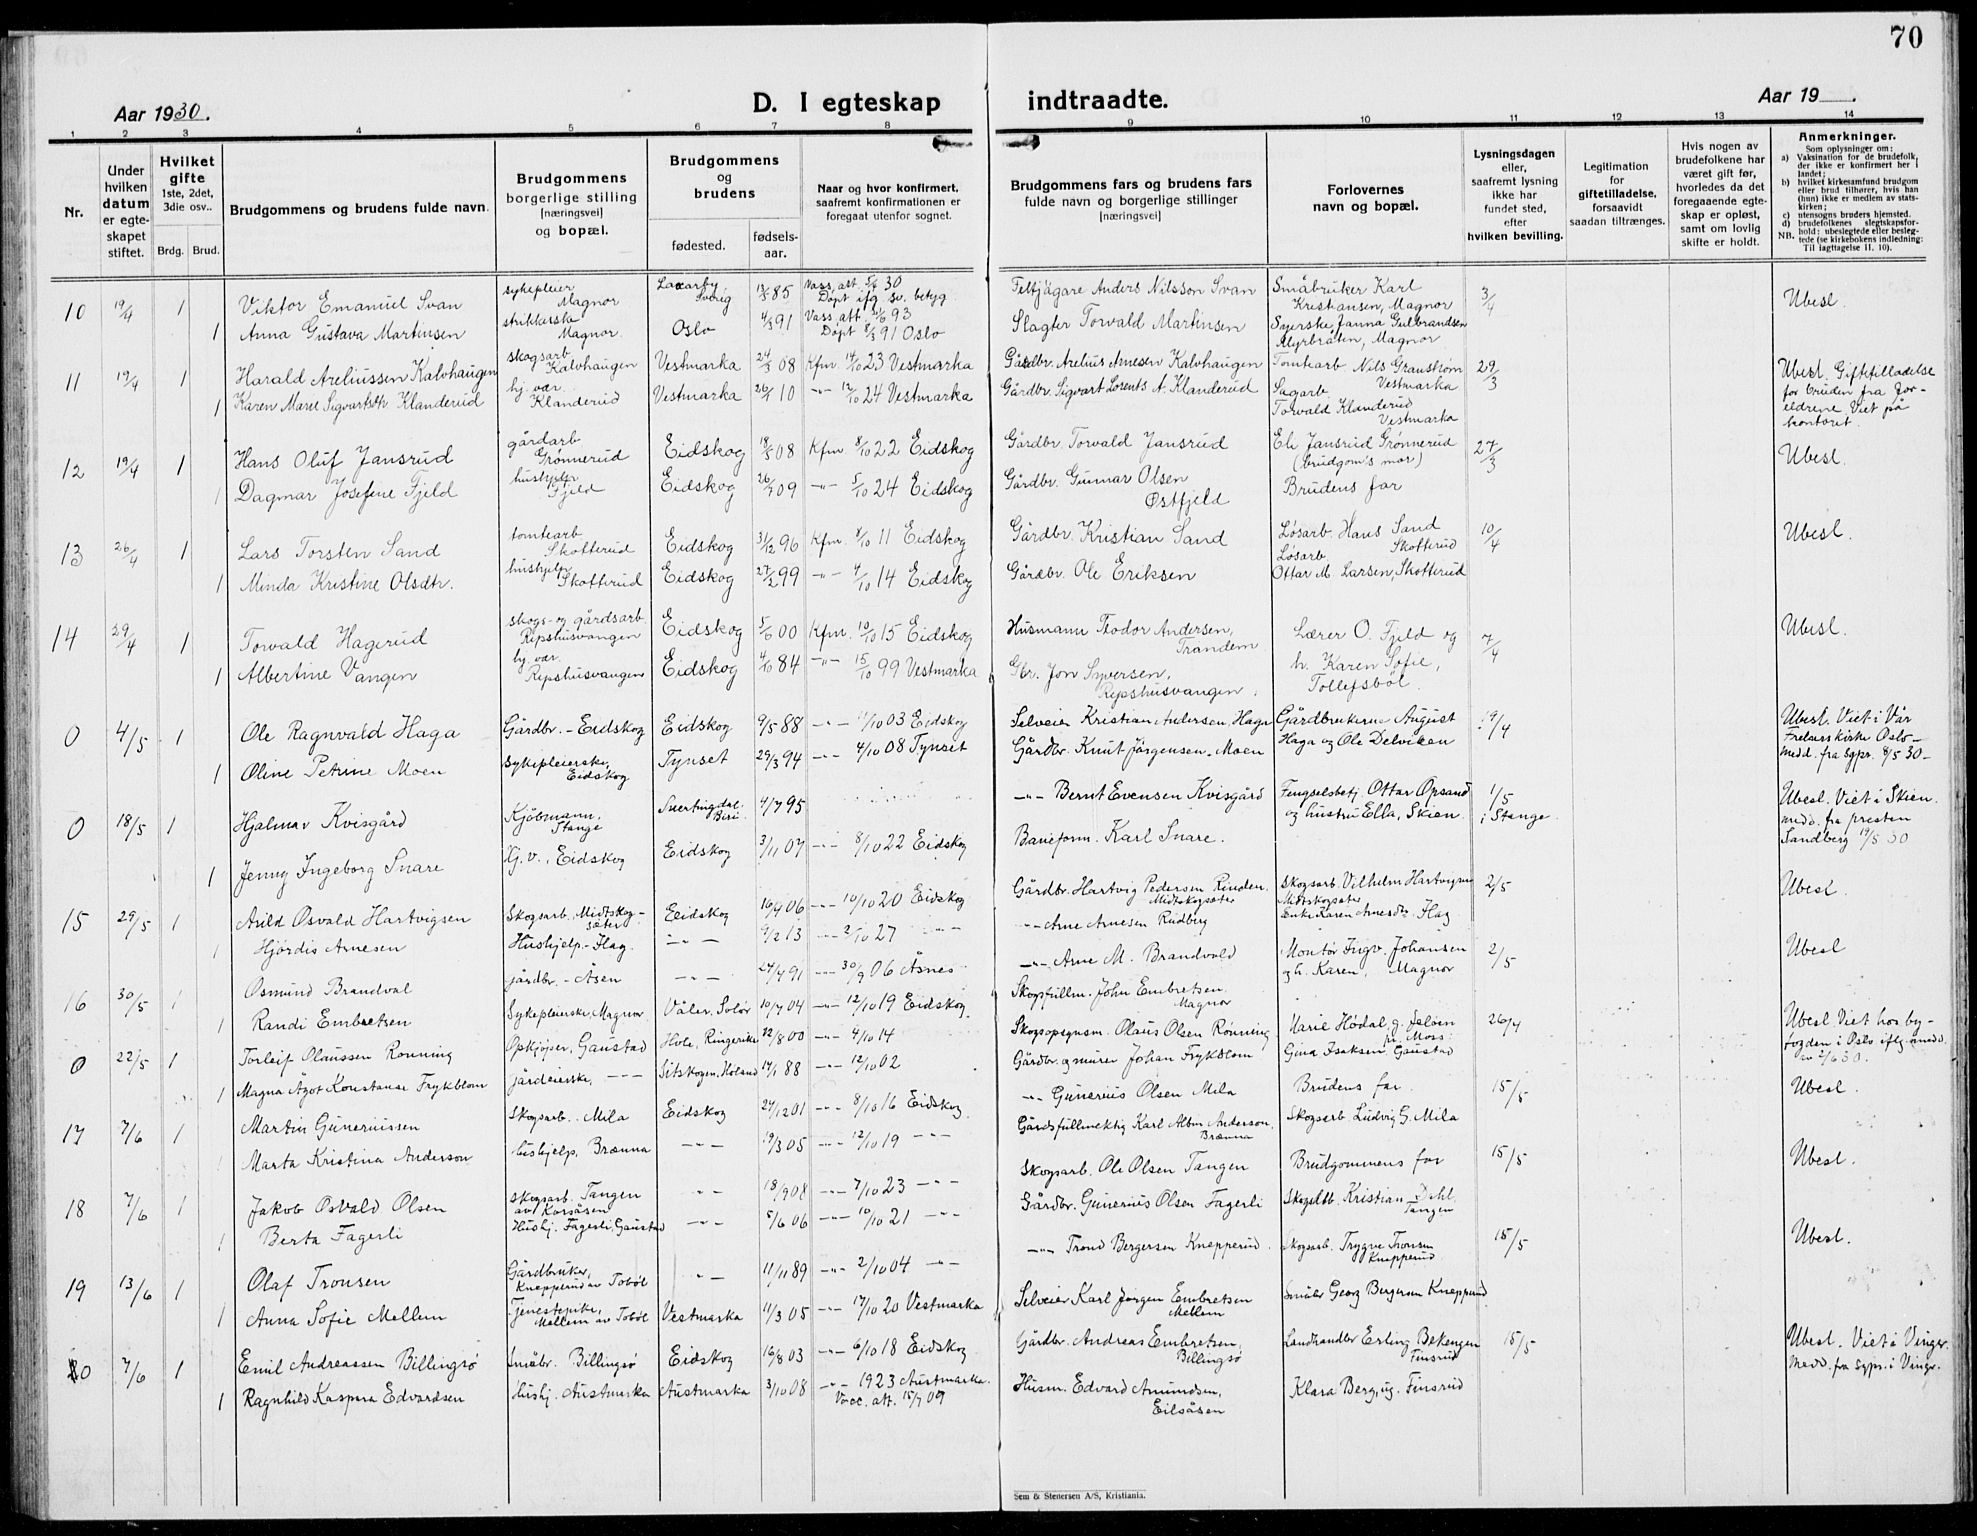 70
Aar 1930.
D. I egteskap indtraadte.
Aar 19 .
1 2 3 4 5 6 7 8 9 10 11 12 13 14
Nr.
Under hvilken datum er egte-skapet stiftet.
Hvilket gifte
1ste, 2det, 3die osv..
Brdg. Brud.
Brudgommens og brudens fulde navn.
Brudgommens borgerlige stilling [næringsvei] og bopæl.
Brudgommens og brudens
fødested.
fødsels-aar.
Naar og hvor konfirmert, saafremt konfirmationen er foregaat utenfor sognet.
Brudgommens fars og brudens fars fulde navn og borgerlige stillinger [næringsvei]
Forlovernes navn og bopæl.
Lysningsdagen eller, saafremt lysning ikke har fundet sted, efter hvilken bevilling.
Legitimation for giftetilladelse, forsaavidt saadan tiltrænges.
Hvis nogen av brudefolkene har været gift før, hvorledes da det foregaaende egte-skap er opløst, samt om lovlig skifte er holdt.
Anmerkninger.
Som oplysninger om:
a) Vaksination for de brudefolk, der ikke er konfirmert her i landet;
b) hvilket kirkesamfund brudgom eller brud tilhører, hvis han (hun) ikke er medlem av stats-kirken;
c) utensogns bruders hjemsted.
d) brudefolkenes slegtskapsfor-hold: ubeslegtede eller besleg-tede (se kirkebokens indledning:
NB. Til iagttagelse II, 10).
10 19/4 1 Viktor Emanuel Svan sykepleier Magnor Laxarby Sverig 13/5 85 Vacs. att. 5/6 30 Døpt ifg. sv. betyg Feltjägare Anders Nilsson Svan Småbruker Karl Kristiansen, Magnor 3/4 Ubesl.
1 Anna Gustava Martinsen strikkerske Magnor. Oslo 4/3 91 Døpt 8/3 91 Oslo Slagter Torvald Martinsen Syerske Janna Gulbrandsen Myrbråten, Magnor
11 19/4 1 Harald Areliussen Kalvhaugen skogsarb. Kalvhaugen Vestmarka 24/3 08 Kfm 14/10 23 Vestmarka Gårdbr. Arelius Arnesen Kalvhaugen Tomtearb. Nils Granstrøm Vestmarka 29/3 Ubesl. Giftetilladelse for bruden fra for-eldrene. Viet på kontoret.
1 Karen Marie Sigvartsdtr. Klanderud hj. vær. Klanderud Vestmarka 26/1 10 -"- 12/10 24 Vestmarka Gårdbr. Sigvart Lorents A. Klanderud Sagarb. Torvald Klanderud Vestmarka
12 19/4 1 Hans Oluf Jansrud gårdarb Grønnerud Eidskog 18/5 08 Kfm 8/10 22 Eidskog Gårdbr. Torvald Jansrud Eli Jansrud Grønnerud (brudgom's mor) 27/3 Ubesl.
1 Dagmar Josefine Fjeld hushjelp Fjeld Eidskog 26/4 09 -"- 5/10 24 Eidskog Gårdbr. Gunnar Olsen Østfjeld Brudens far
13 26/4 1 Lars Torsten Sand tomtearb Skotterud Eidskog 31/12 96 Kfm. 8/10 11 Eidskog Gårdbr. Kristian Sand Løsarb. Hans Sand Skotterud 10/4 Ubesl.
1 Minda Kristine Olsdtr. hushjelp Skotterud Eidskog 27/2 99 -"- 4/10 14 Eidskog Gårdbr. Ole Eriksen Løsarb Ottar M. Larsen, Skotterud
14 29/4 1 Torvald Hagerud skogs- og gårdsarb. Ripshusvangen Eidskog 5/6 00 Kfm. 10/10 15 Eidskog Husmann Teodor Andersen, Trandem Lærer O. Fjeld og 7/4 Ubesl.
1 Albertine Vangen hj. vær. Ripshusvangen Eidskog 4/10 84 -"- 15/10 99 Vestmarka Gbr. Jon Syversen, Ripshusvangen. h. Karen Sofie, Tollefsbøl.
0 4/5 1 Ole Ragnvald Haga Gårdbr. - Eidskog Eidskog 9/5 88 -"- 11/10 03 Eidskog Selveier Kristian Andersen, Haga Gårdbrukerne August Haga og Ole Delviken 19/4 Ubesl. Viet i Vår Frelserskirke Oslo - medd. fra sgpr. 8/5 30 -
1 Oline Petrine Moen Sykepleierske, Eidskog Tynset 29/3 94 -"- 4/10 08 Tynset Gårdbr. Knut Jørgensen Moen
0 18/5 1 Hjalmar Kvisgård Kjøbmann, Stange Snertingdal Biri 4/7 95 -"- Bernt Evensen Kvisgård Fengselsbetj. Ottar Opsand og hustru Ella, Skien. 1/5 i Stange. Ubesl. Viet i Skien. medd. fra presten Sandberg 19/5 30
1 Jenny Ingeborg Snare Hj. v., Eidskog Eidskog 3/11 07 -"- 8/10 22 Eidskog Baneform. Karl Snare.
15 29/5 1 Arild Osvald Hartvigsen Skogsarb. Midtskog-sæter Eidskog 16/9 06 -"- 10/10 20 Eidskog Gårdbr. Hartvig Pedersen Rinden. Midtskogsæter Skogsarb. Vilhelm Hartvigsen Midtskogsæter 2/5 Ubesl.
1 Hjørdis Arnesen Hushjelp - Flag. -"- 9/2 13 -"- 2/10 27 -"- -"- Arne Arnesen Rudberg Enke Karen Arnesdtr. Flag
16 30/5 1 Osmund Brandval gårdbr. - Åsen -"- 24/4 91 -"- 30/9 06 Åsnes -"- Arne M. Brandvold Montør Ingv. Johansen og h. Karen, Magnor 2/5 Ubesl
1 Randi Embretsen Sykepleierske, Magnor Våler, Solør 10/7 04 -"- 12/10 19 Eidskog. Skogsfullm. John Embretsen Magnor
0 22/5 1 Torleif Olaussen Rønning Opkjøper, Gaustad Hole, Ringerike 12/8 00 -"- 4/10 14 Skogsopsynsm. Olaus Olsen Rønning Marie Hødal, g. Jeløen pr. Moss 26/4 Ubesl. Viet hos by-fogden i Oslo iflg. medd. av 2/6 30.
1 Magna Agot Konstanse Frykblom gårdeierske, -"- Sitskogen, Høland 17/1 88 -"- 12/10 02 Gårdbr. og murer Johan Frykblom Gina Isaksen, Gaustad
17 7/6 1 Martin Guneriussen Skogsarb. Mila Eidskog 24/12 01 -"- 8/10 16 Eidskog -"- Gunerius Olsen Mila Brudens far. 15/5 Ubesl.
1 Marta Kristina Anderson hushjelp, Brænna -"- 19/3 05 -"- 12/10 19 -"- Gårdsfullmektig Karl Albin Anderson, Brænna Skogsarb. Ludvig G. Mila
18 7/6 1 Jakob Osvald Olsen skogsarb. Tangen av Korsåsen -"- 18/9 08 -"- 7/10 23 -"- Skogsarb. Ole Olsen Tangen Brudgommens far 15/5 Ubesl.
1 Berta Fagerli Hushj. Fagerli, Gaustad -"- 5/6 06 -"- 10/10 21 -"- Gårdbr. Gunerius Olsen Fagerli Skogsarb. Kristian Dahl, Tangen
19 13/6 1 Olaf Tronsen Gårdbruker, Knepperud av Tobøl -"- 11/11 89 -"- 2/10 04 -"- -"- Trond Bergersen Knepperud. Skogsarb. Trygve Tronsen Knepperud 15/5 Ubesl.
1 Anna Sofie Mellem Tjenestepike, Mellem av Tobøl Vestmarka 11/3 05 -"- 17/10 20 Vestmarka Selveier Karl Jørgen Embretsen Mellem Småbr Georg Bergersen Knepperud
0 7/6 1 Emil Andreassen Billingsø Småbr. Billingsø Eidskog 16/8 03 -"- 6/10 18 Eidskog Gårdbr. Andreas Embretsen, Billingsø Landhandler Erling Bekengen Finsrud 15/5 Ubesl. Viet i Vinger. Medd. fra sgpr. i Vinger.
1 Ragnhild Kaspara Edvardsen Hushj. Austmarka Austmarka 3/10 08 -"- 1923 Austmarka. Vacc. att. 15/7 09 Husm. Edvard Amundsen, Eilsåsen Klara Berg, ug. Finsrud
Sem & Stenersen A/S, Kristiania.